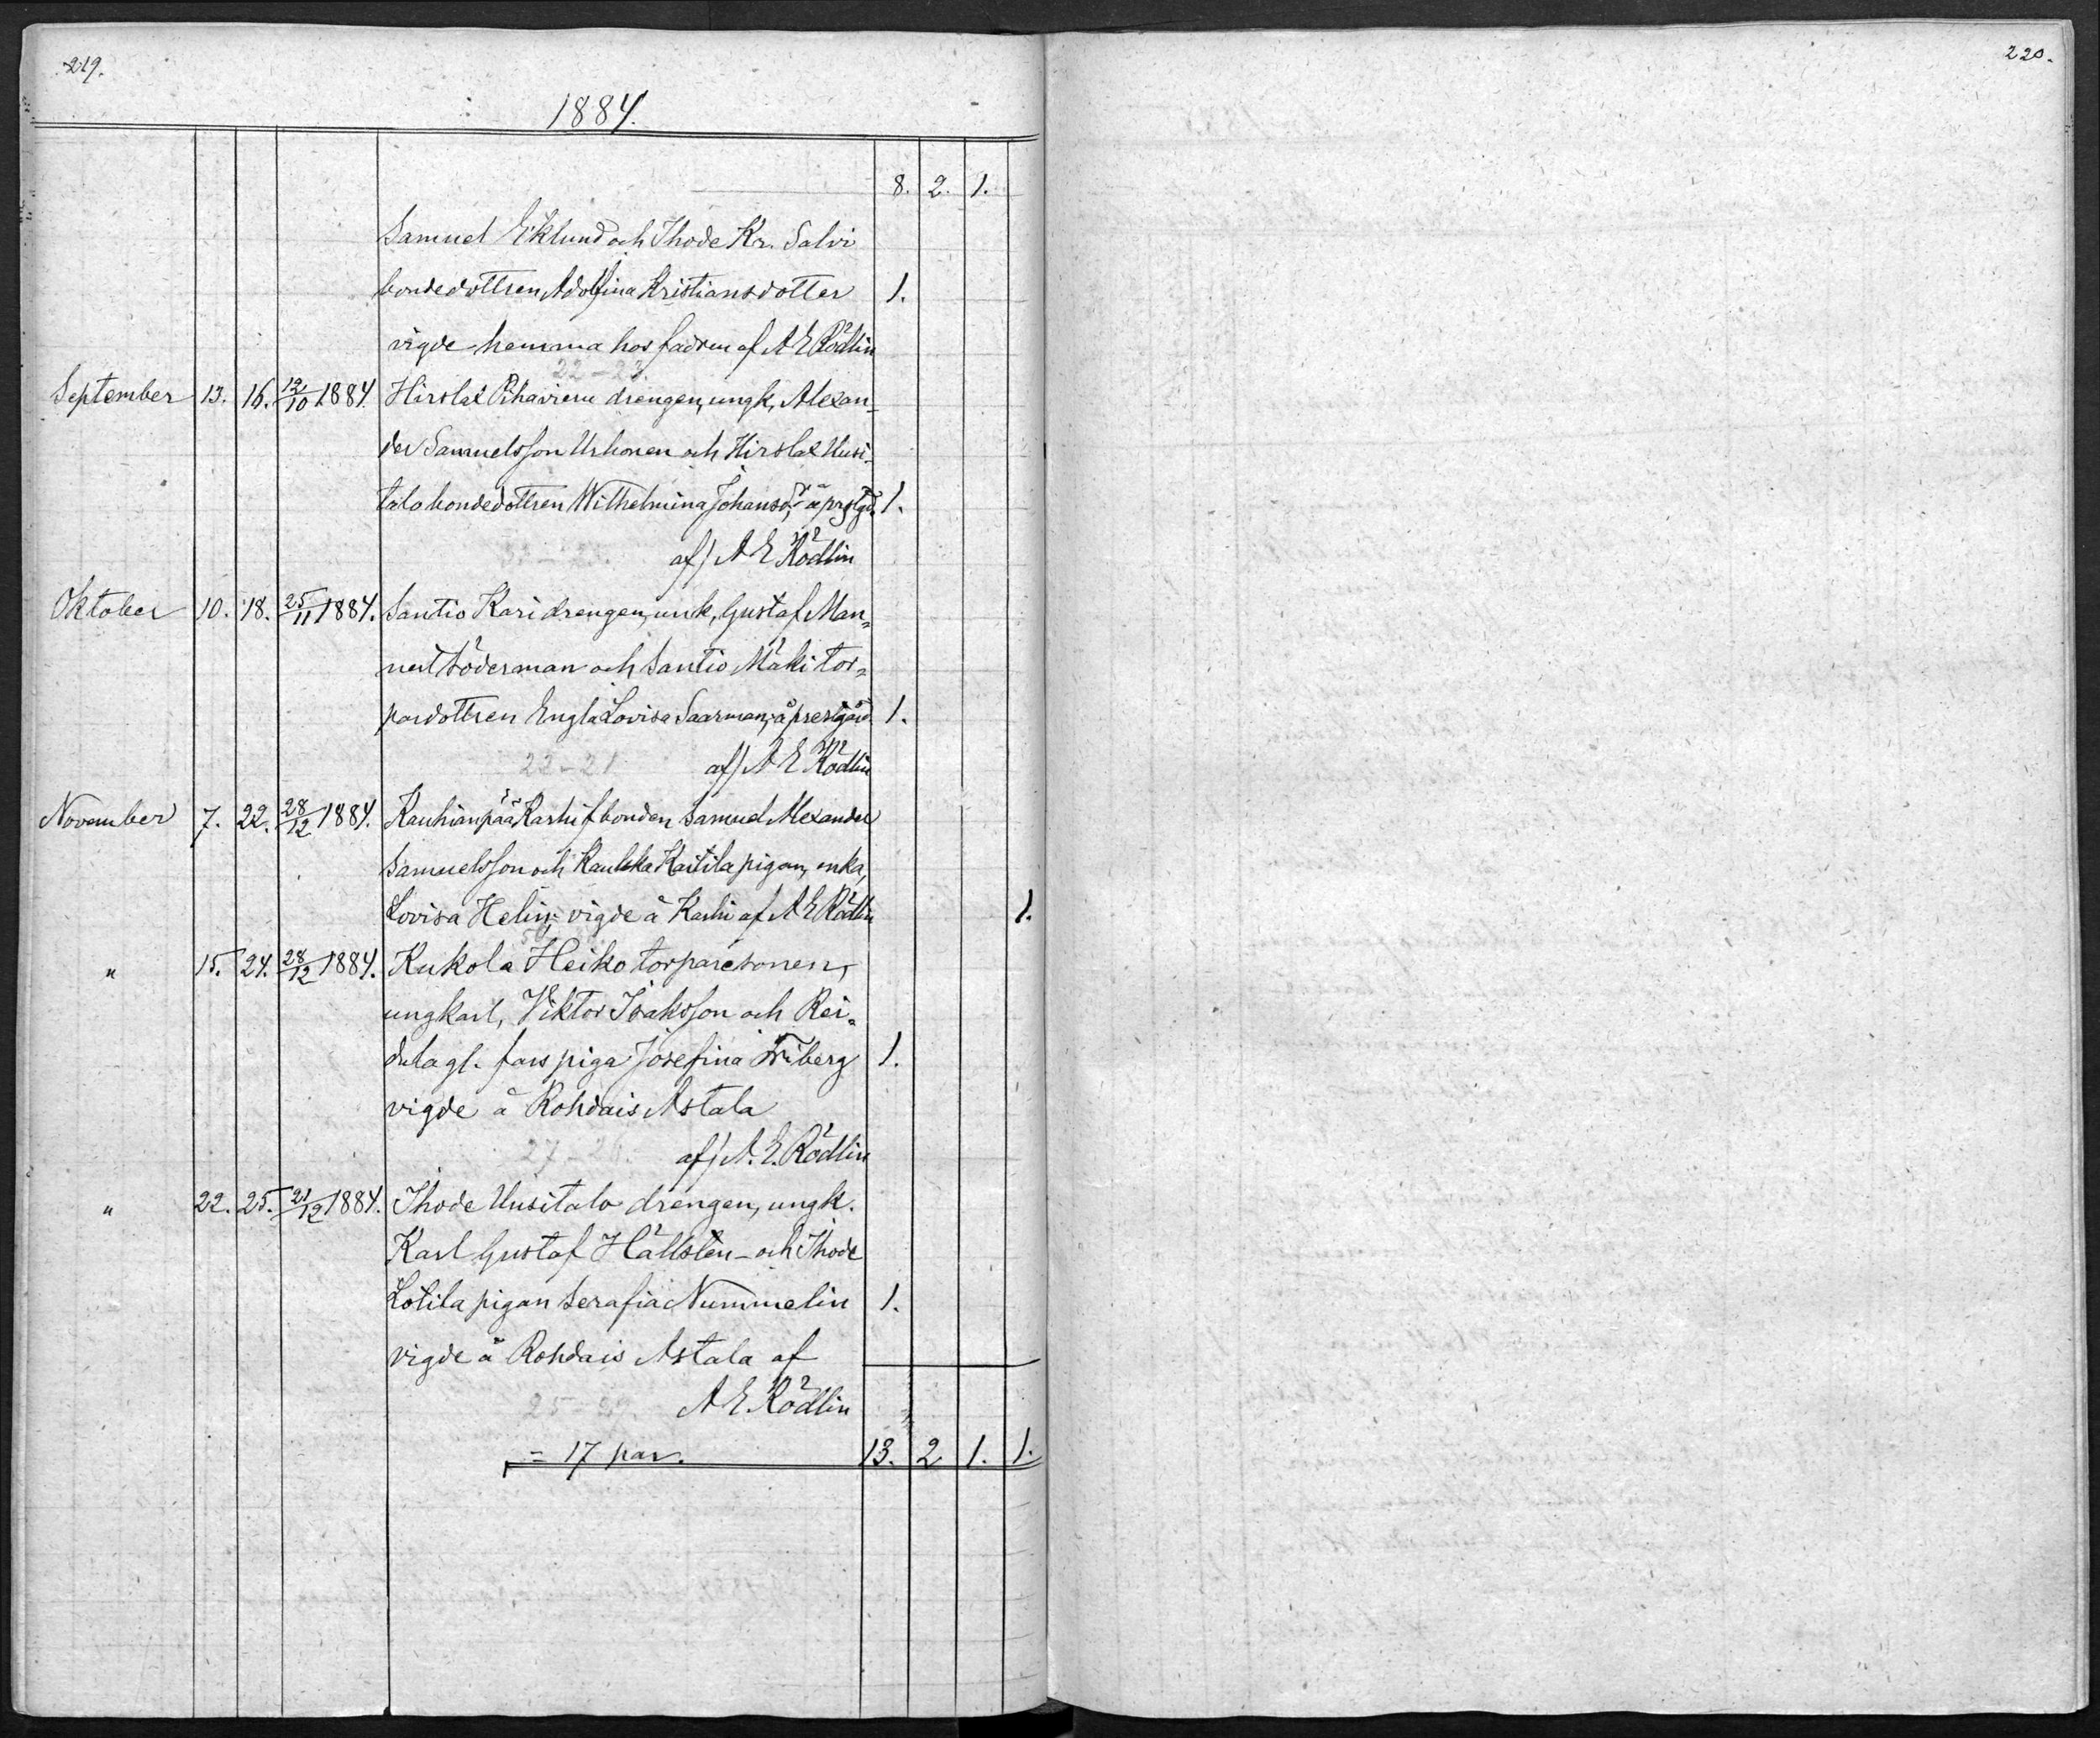 219.
220.
1884.
8. 2. 1.
Samuel Eklund och Ihode Kr. Salvi
bondedottren Adolfina Kristiansdotter 1.
vigde hemma hos fadren af A E Rödlin
22-23.
September 13. 16. 12/10 1884. Hirslax Pihavieru drengen, ungk, Alexan-
der Samuelsson Urhonen och Hirslax Uusi-
talo bondedottren Wilhelmina Johansd:r å prstgd. 1.
af) A E Rödlin
Oktober 10. 18. 25/11 1884. Santio Kari drengen, unk, Gustaf Man=
nuel Söderman och Santio Mäki tor=
pardottren Engla Lovisa Saarman, å prestgård. 1.
22-21 af) A E Rödlin
November 7. 22. 28/12 1884. Kauhianpää Karhi f bonden Samuel Alexander
Samuelsson och Kaitila pigan, enka,
Lovisa Helin, vigde å Karhi af A E Rödlin 1.
" 15. 24. 28/12 1884. Kukola Heiko torparesonen,
ungkarl, Viktor Isaksson och Rei=
dula gl. fars piga Josefina Friberg 1.
vigde å Rohdais Astala
27-26. af) A. E. Rödlin
" 22. 25. 21/12 1884. Ihode Uusitalo drengen, ungk.
Karl Gustaf Hällsten och Ihode
Lotila pigan Serafia Nummelin 1.
vigde å Rohdais Astala af
A E. Rödlin
= 17 par. 13. 2 1. 1.